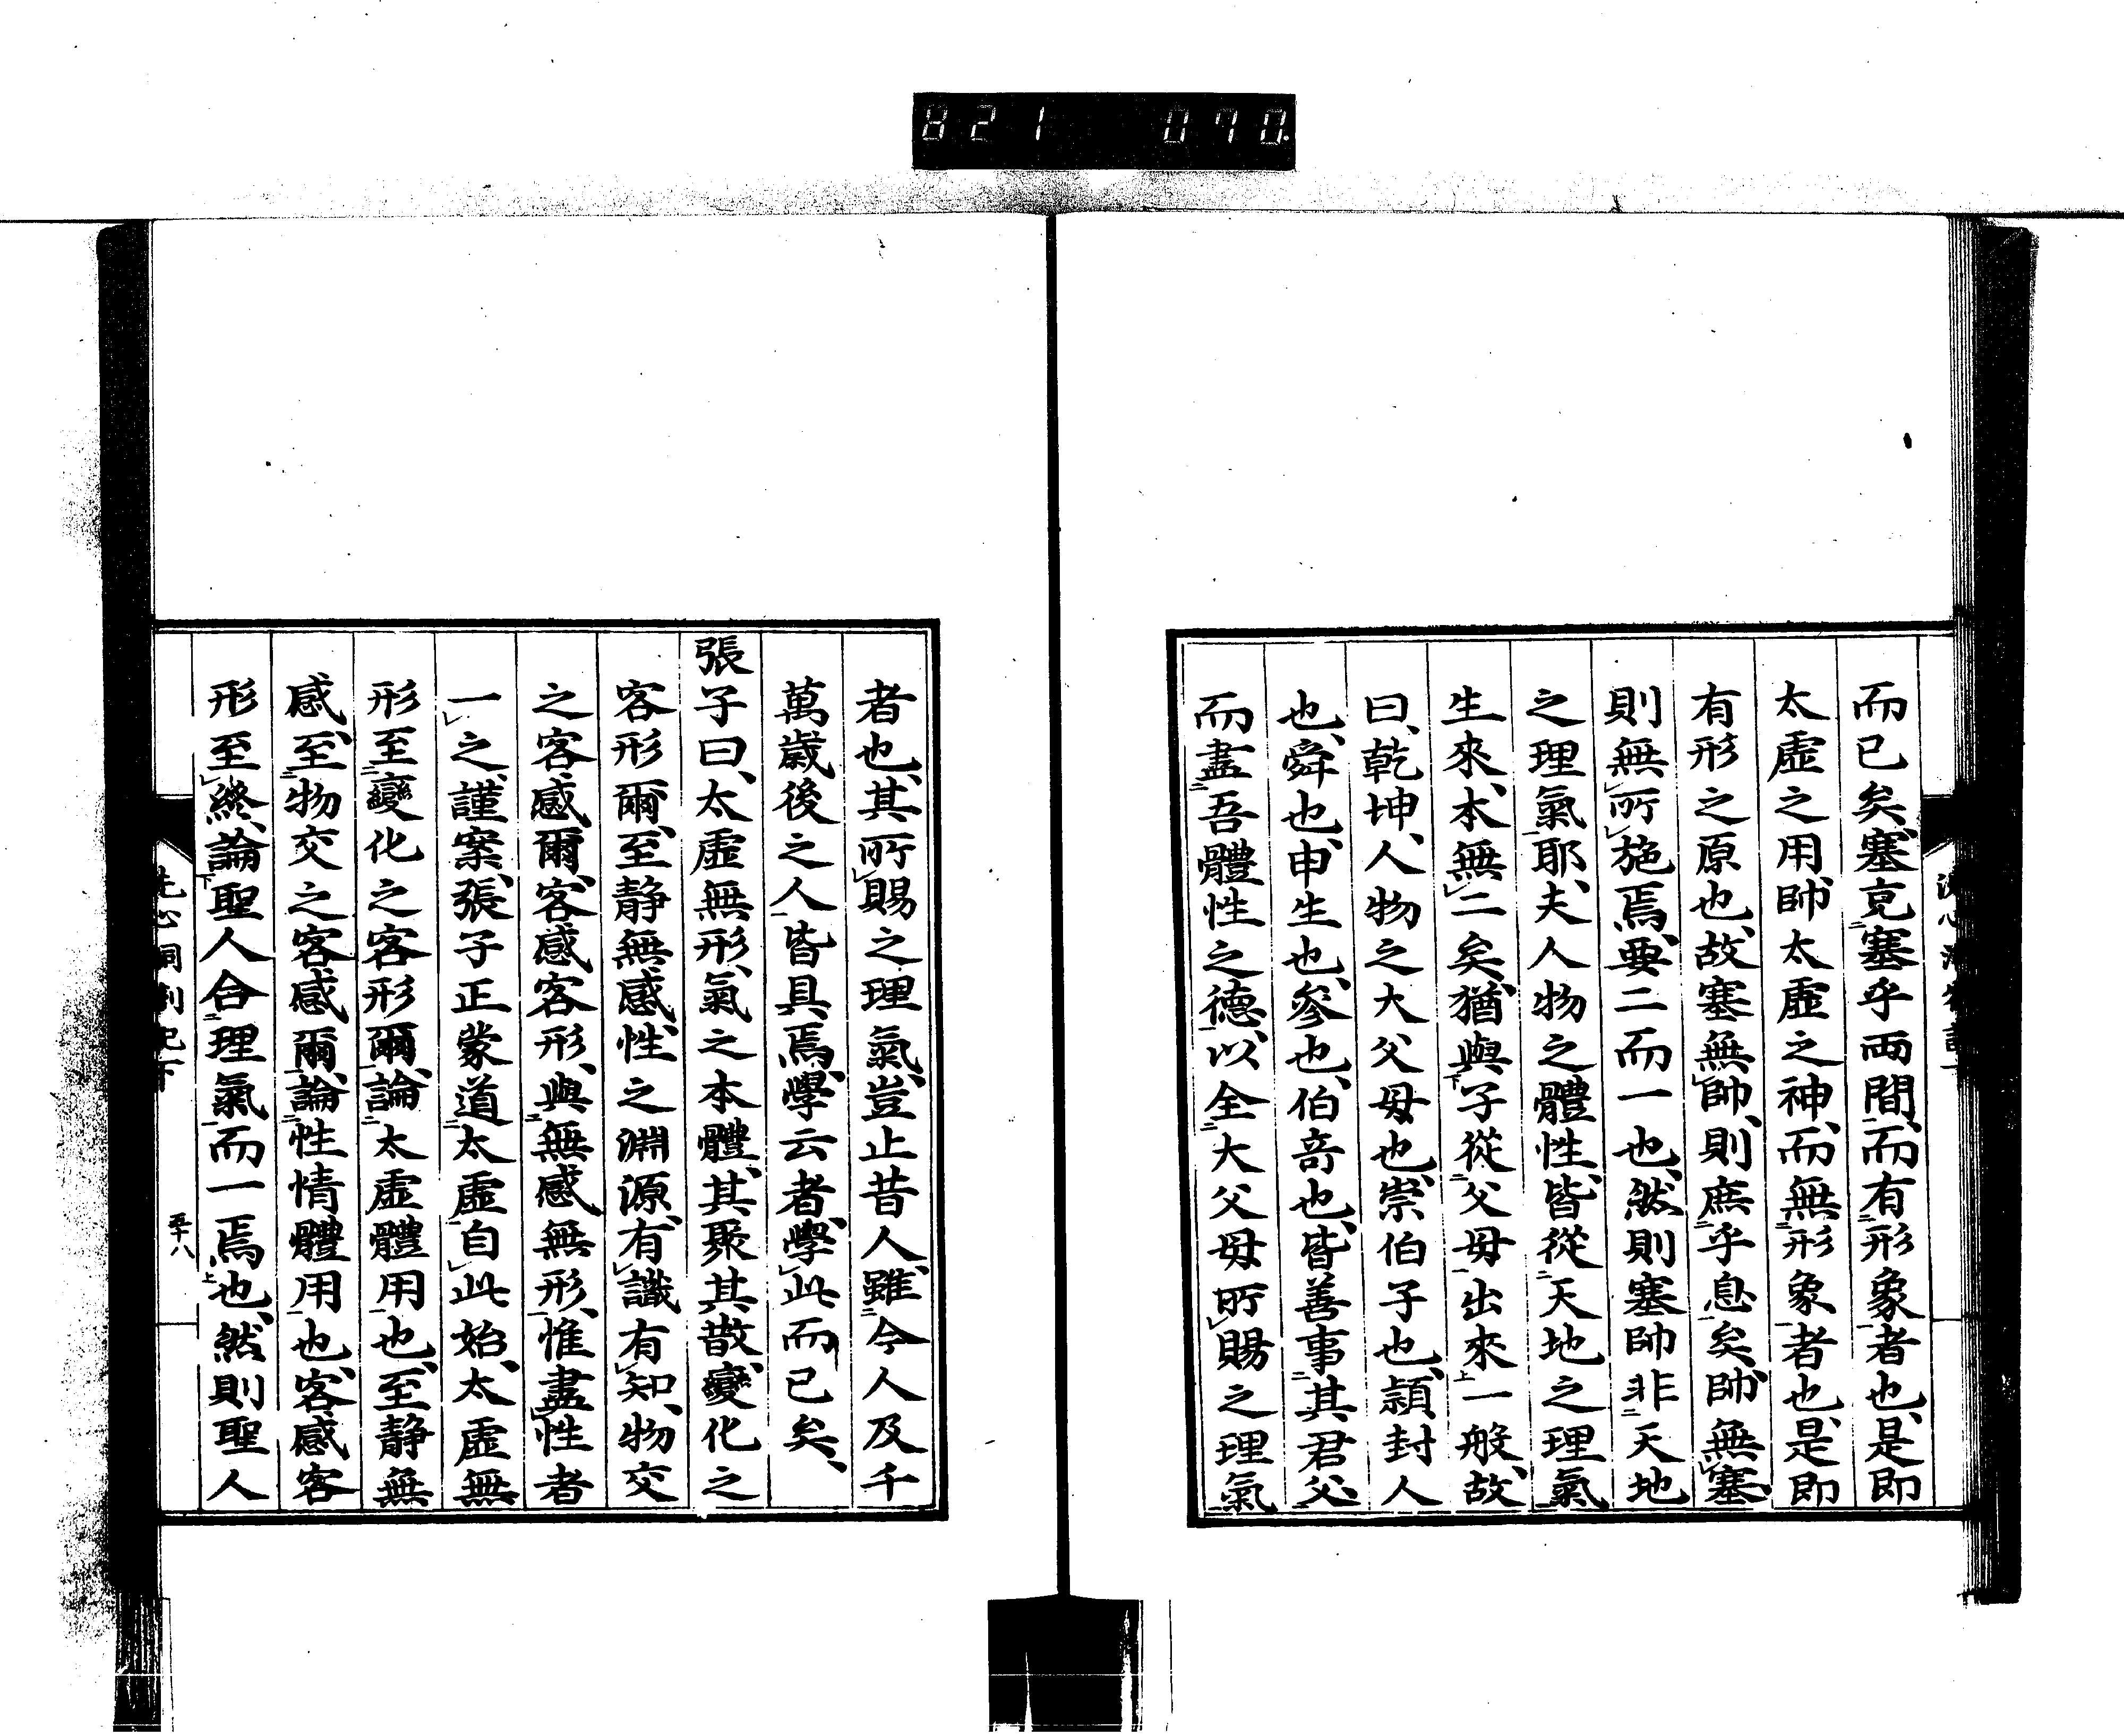 821 070
而已矣、塞充塞乎兩間、而有形象者也、是即
太虛之用、帥太虛之神、而無形象者也、是即
有形之原也、故塞無帥、則庶乎息矣、帥無塞、
則無所施焉、要二而一也、然則塞帥非天地
之理氣耶、夫人物之體性、皆從天地之理氣
生來、本無二矣、猶與子從父母出來一般、故
曰、乾坤、人物之大父母也、崇伯子也、頴封人
也、舜也、申生也、參也、伯奇也、皆善事其君父、
而盡吾體性之德、以全大父母所賜之理氣
者也、其所賜之理氣、豈止昔人、雖今人及千
萬歲後之人、皆具焉、學云者、學此而已矣、
張子曰、太虛無形、氣之本體、其聚其散、變化之
客形爾、至靜無感、性之淵源、有識有知、物交
之客感爾、客感客形、與無感無形、惟盡性者
一之、謹案、張子正蒙道太虛自此始、太虛無
形至變化之客形爾、論太虛體用也、至靜無
感、至物交之客感爾、論性情體用也、客感客
形至終、論聖人合理氣而一焉也、然則聖人
洗心洞劄記下
五十八